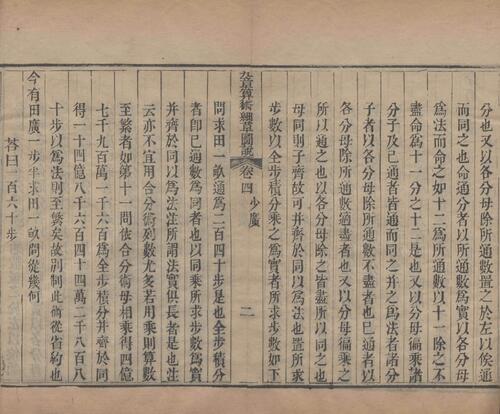 分也又以各分母除所通數置之於左以俟通
而同之也命通分者以所通數為實以各分母
為法而命之如十二為所通數以十一除之不
盡命為十一分之十二是也又以分母徧乘諸
分子及已通者皆通而同之并之為法者諸分
子者以各分母除所通數不盡者也已通者以
各分母除所通數適盡者也又以分母徧乘之
所以通之也以各分母除之皆盡所以同之也
母同則子齊故可并齊於同以為法也置所求
步數以全步積分乘之為實者所求步數如下
九章算術細草圖說 卷四 少廣 二
問求田一畝通為二百四十步是也全步積分
者即已通數為同者也以同乘所求步數為實
并齊於同以為法注所謂法實俱長者是也注
云亦不宜用合分術列數尤多若用乘則算數
至繁者如第十一問依合分術母相乘得四億
七千九百萬一千六百為全步積分并齊於同
得一十四億八千六百四十四萬二千八百八
十步以為法則至繁矣故別制此術從省約也
今有田廣一步半求田一畝問從幾何
答曰一百六十步